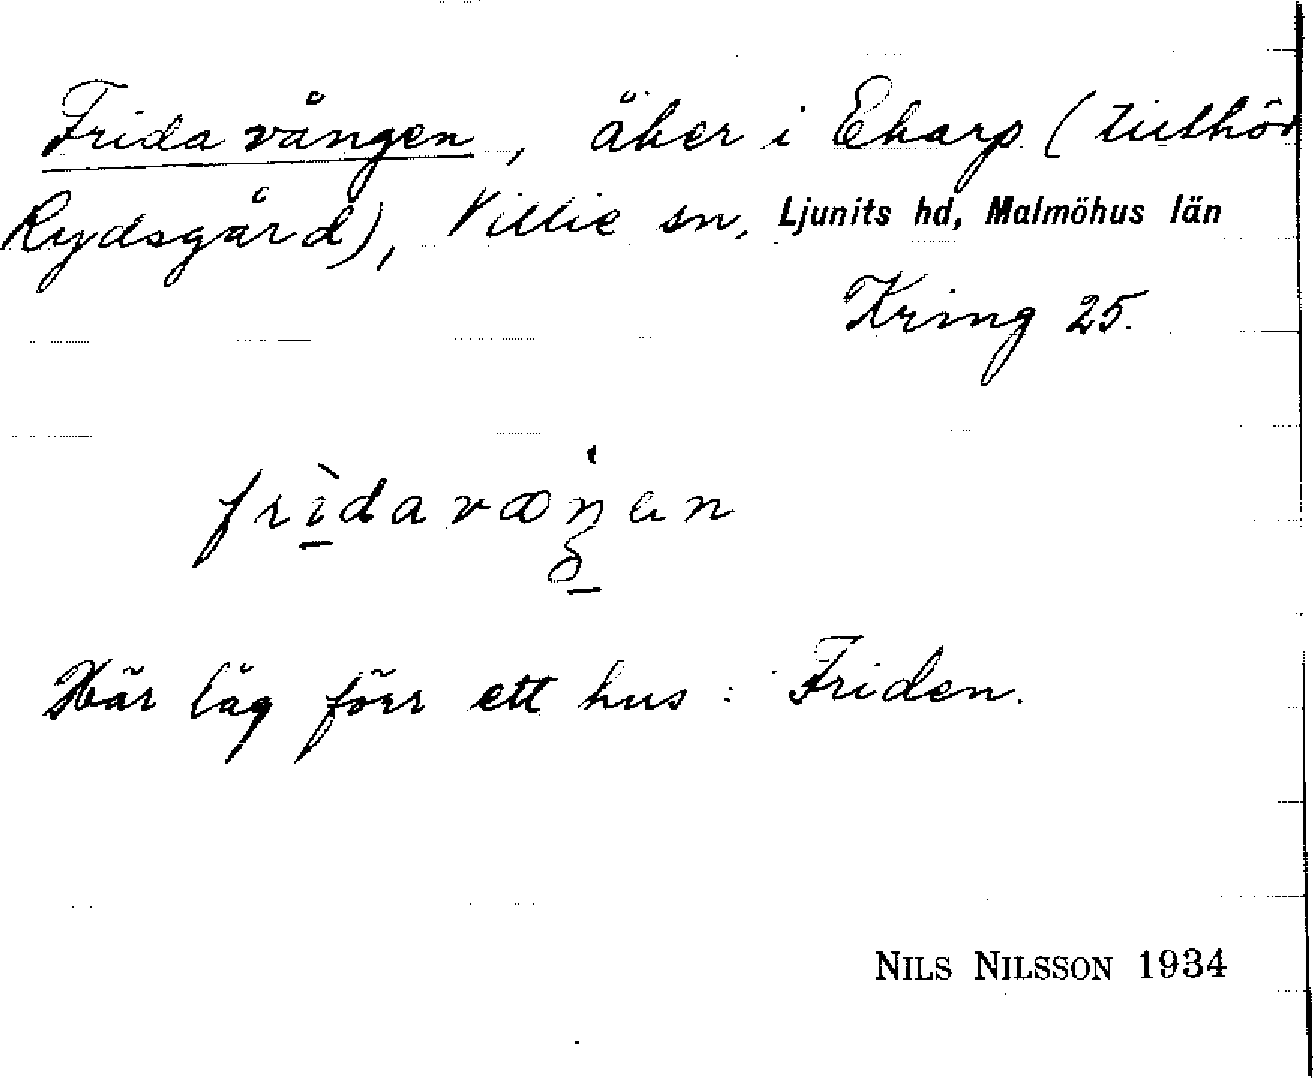 Frida vången, åker i Ekarp (tillhör
Rydsgård), Villie sn, Ljunits hd, Malmöhus län
Kring 25.
Här låg förr ett hus: Friden.
NILS NILSSON 1934